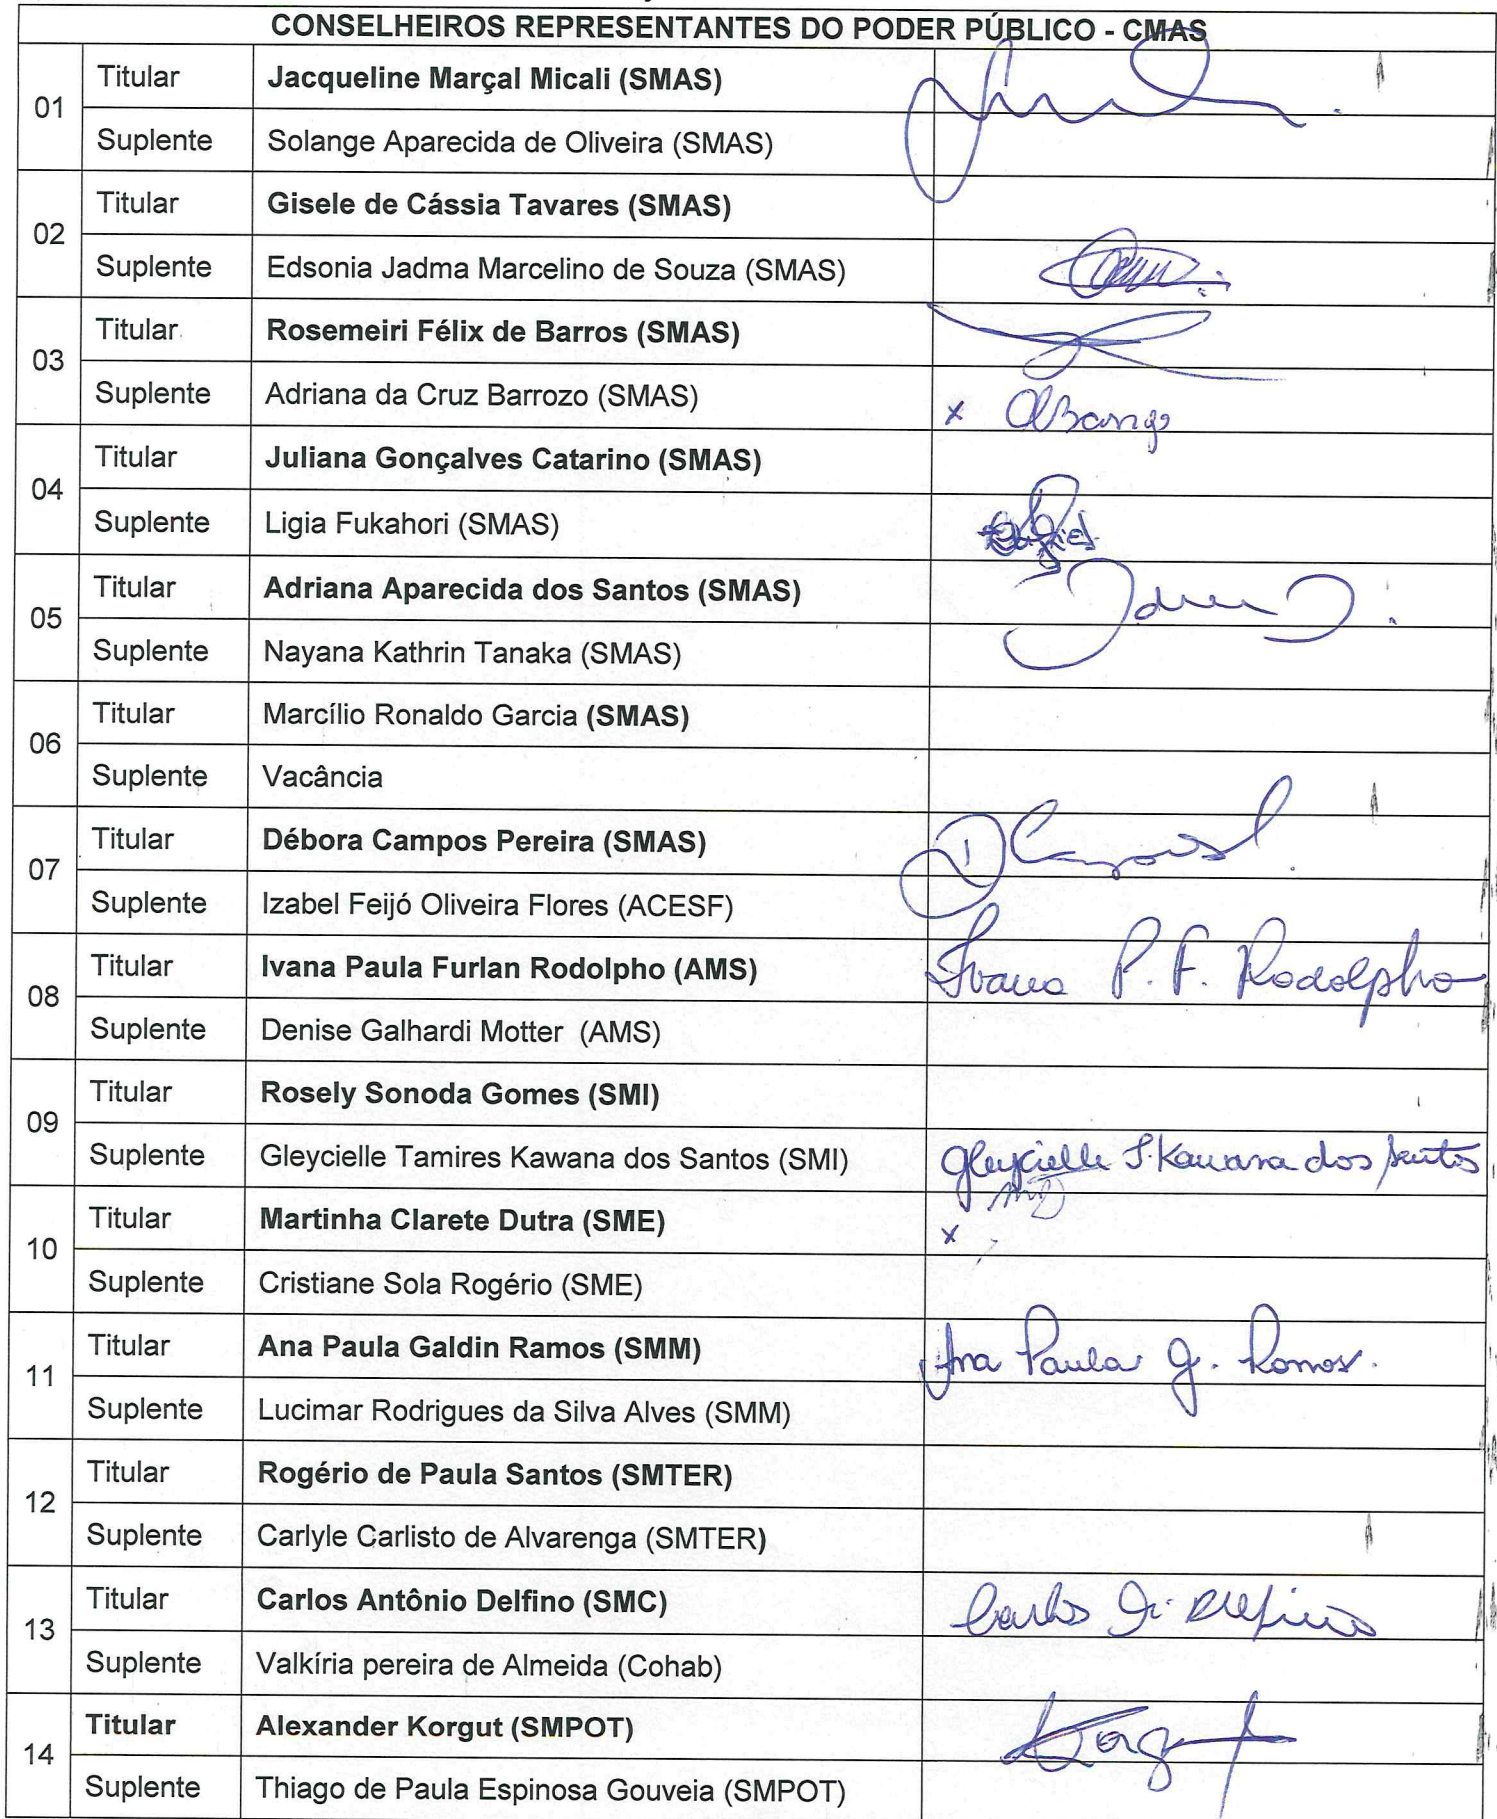 CONSELHEIROS REPRESENTANTES DO PODER PÚBLICO - CMAS
01 Titular Jacqueline Marçal Micali (SMAS)
Suplente Solange Aparecida de Oliveira (SMAS)
02 Titular Gisele de Cássia Tavares (SMAS)
Suplente Edsonia Jadma Marcelino de Souza (SMAS)
03 Titular Rosemeiri Félix de Barros (SMAS)
Suplente Adriana da Cruz Barrozo (SMAS) x
04 Titular Juliana Gonçalves Catarino (SMAS)
Suplente Ligia Fukahori (SMAS)
05 Titular Adriana Aparecida dos Santos (SMAS)
Suplente Nayana Kathrin Tanaka (SMAS)
06 Titular Marcílio Ronaldo Garcia (SMAS)
Suplente Vacância
07 Titular Débora Campos Pereira (SMAS)
Suplente Izabel Feijó Oliveira Flores (ACESF)
08 Titular Ivana Paula Furlan Rodolpho (AMS) Ivana P. F. Rodolpho
Suplente Denise Galhardi Motter (AMS)
09 Titular Rosely Sonoda Gomes (SMI)
Suplente Gleycielle Tamires Kawana dos Santos (SMI) Gleycielle T. Kawana dos Santos
10 Titular Martinha Clarete Dutra (SME) x
Suplente Cristiane Sola Rogério (SME)
11 Titular Ana Paula Galdin Ramos (SMM) Ana Paula G. Ramos.
Suplente Lucimar Rodrigues da Silva Alves (SMM)
12 Titular Rogério de Paula Santos (SMTER)
Suplente Carlyle Carlisto de Alvarenga (SMTER)
13 Titular Carlos Antônio Delfino (SMC) Carlos A. Delfino
Suplente Valkíria pereira de Almeida (Cohab)
14 Titular Alexander Korgut (SMPOT) Korgut
Suplente Thiago de Paula Espinosa Gouveia (SMPOT)